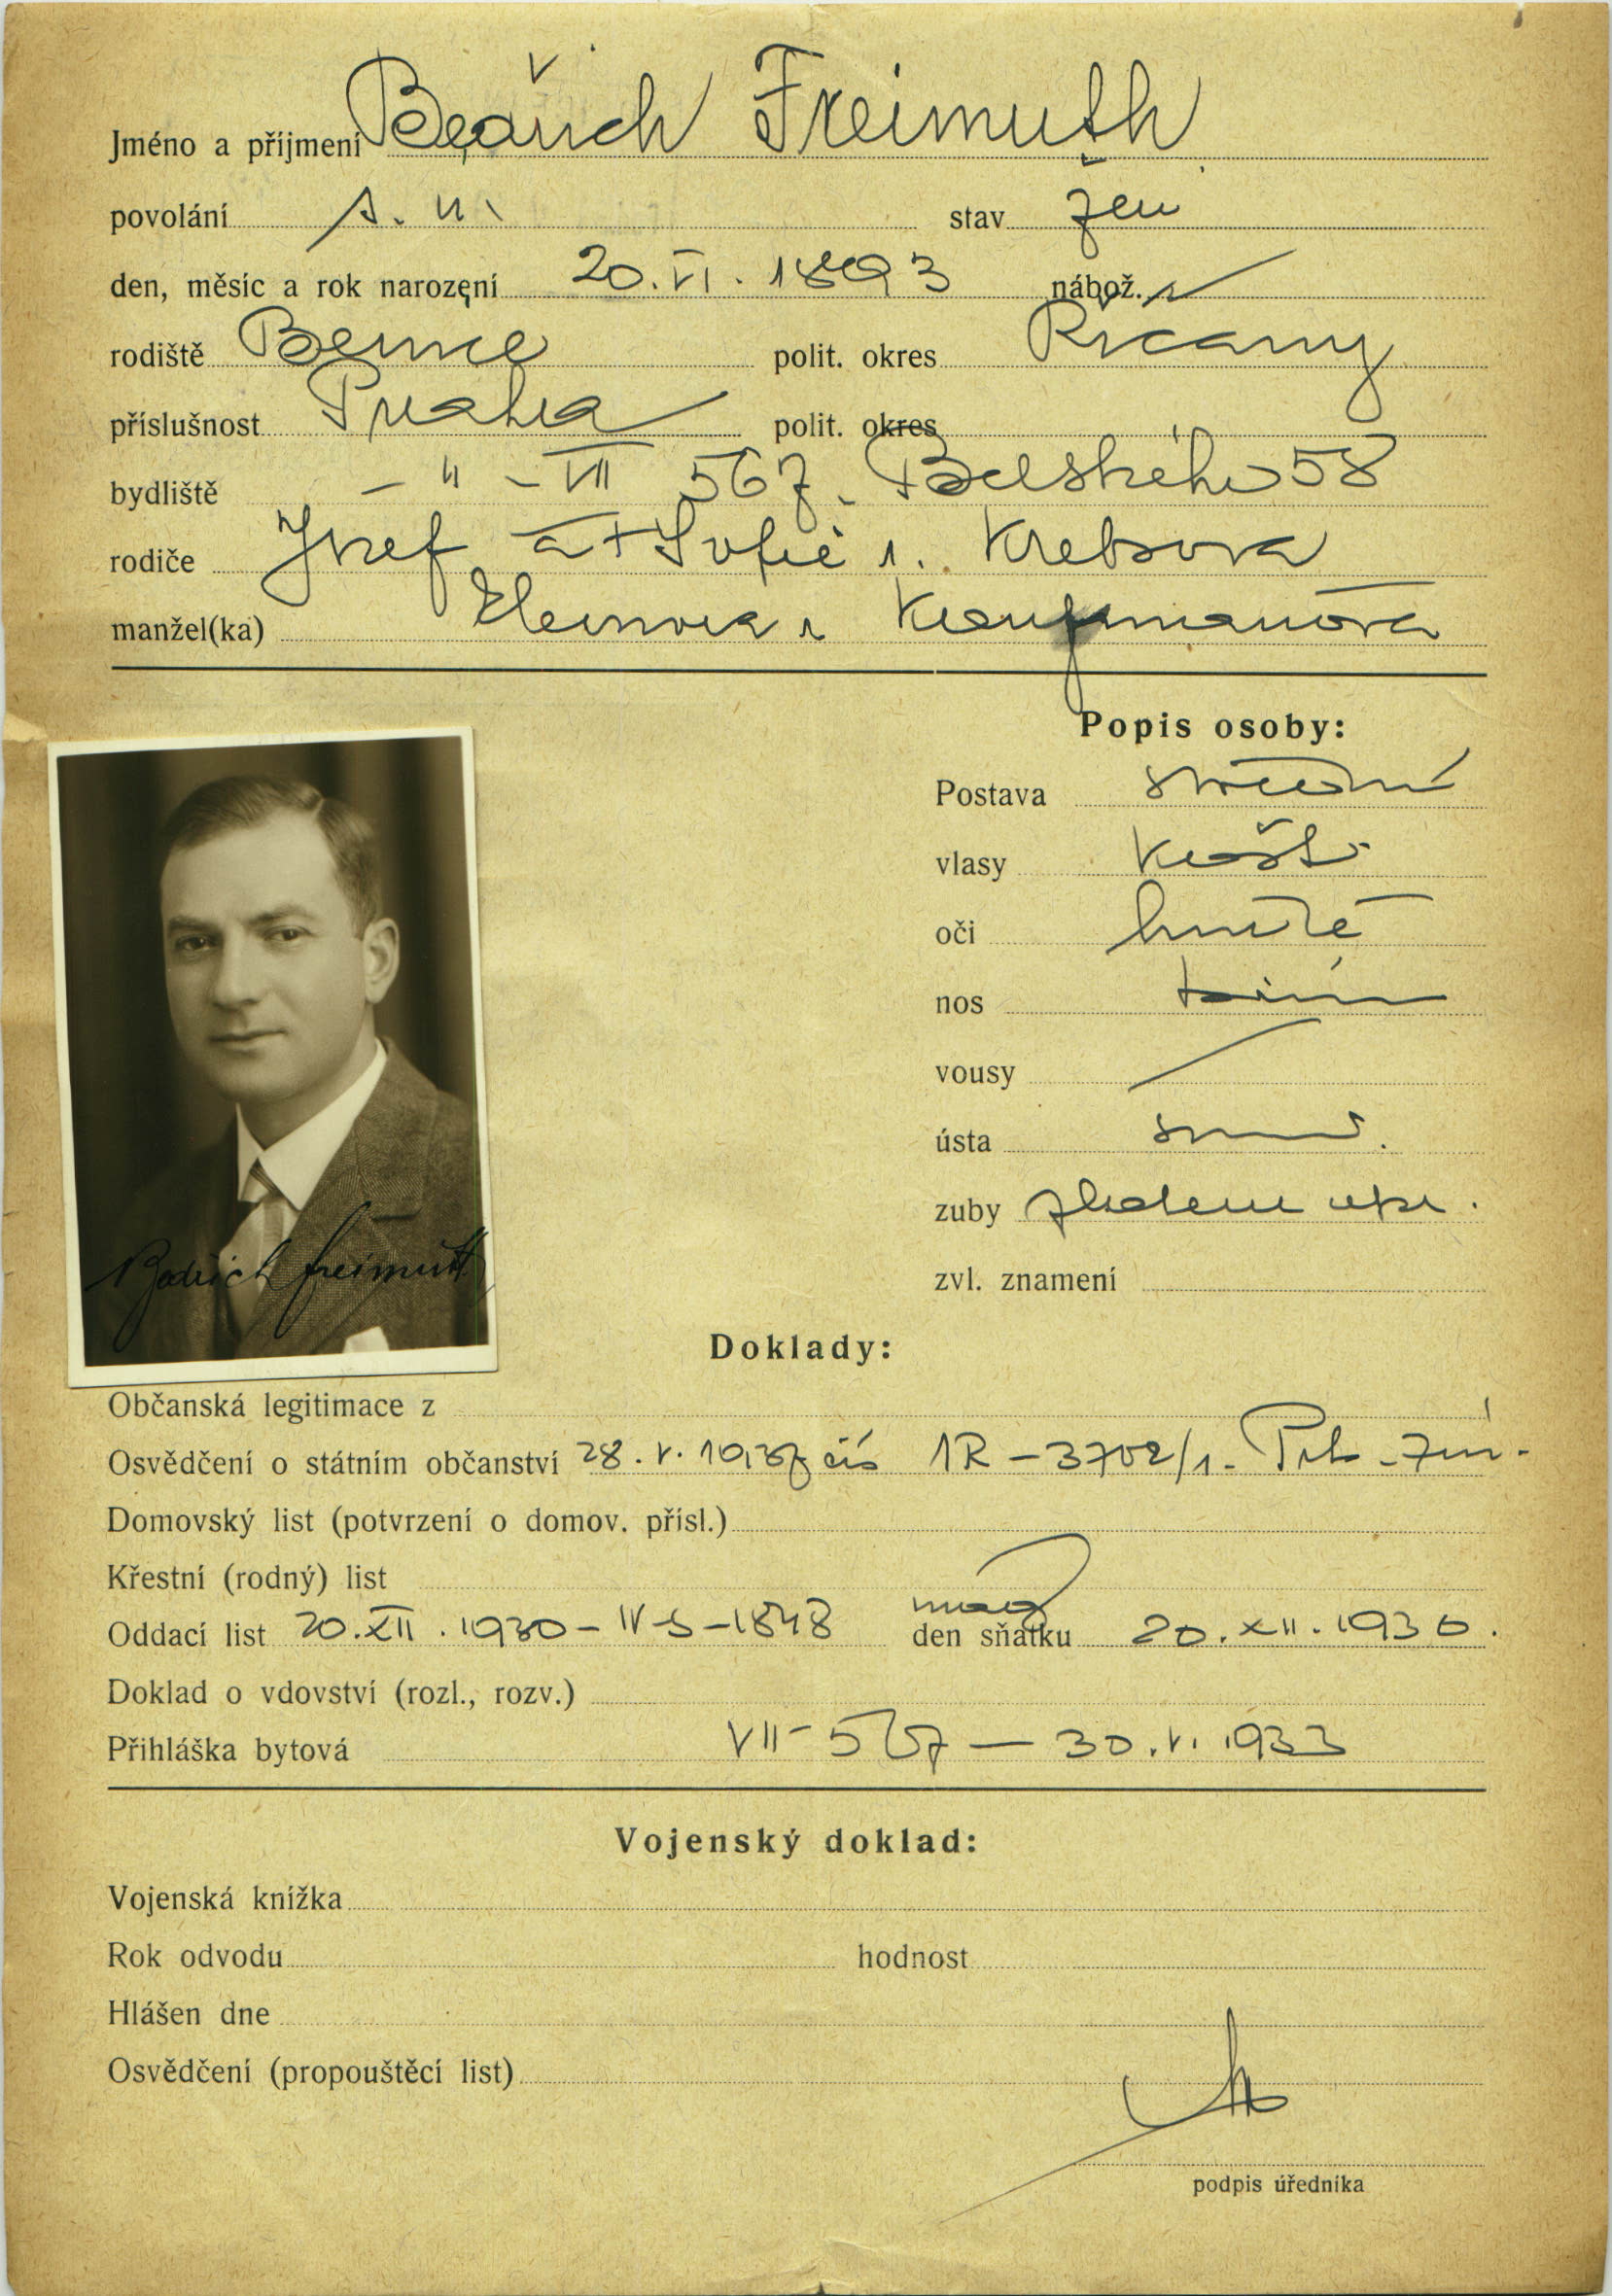 Jméno a příjmení Bedřich Freimuth
povolání s. ú. stav žen
den, měsíc a rok narození 20. VI. 1893 nábož.
rodiště Benice polit. okres Říčany
příslušnost Praha polit. okres
bydliště – " – VII 567 Belského 58
rodiče Josef a + Sofie r. Krebsova
manžel(ka) Eleonora r Kaufmanova
Popis osoby:
Postava střední
vlasy
oči hnědé
nos
vousy
ústa
zuby
zvl. znamení
Bedřich Freimuth
Doklady:
Občanská legitimace z
Osvědčení o státním občanství 28. V. 1937 čís 1R – 3702/1
Domovský list (potvrzení o domov. přísl.)
Křestní (rodný) list
Oddací list 20. XII. 1930 – IV-S-1848 mag den sňatku 20. XII. 1930.
Doklad o vdovství (rozl., rozv.)
Přihláška bytová VII – 567 — 30. V. 1933
Vojenský doklad:
Vojenská knížka
Rok odvodu hodnost
Hlášen dne
Osvědčení (propouštěcí list)
podpis úředníka